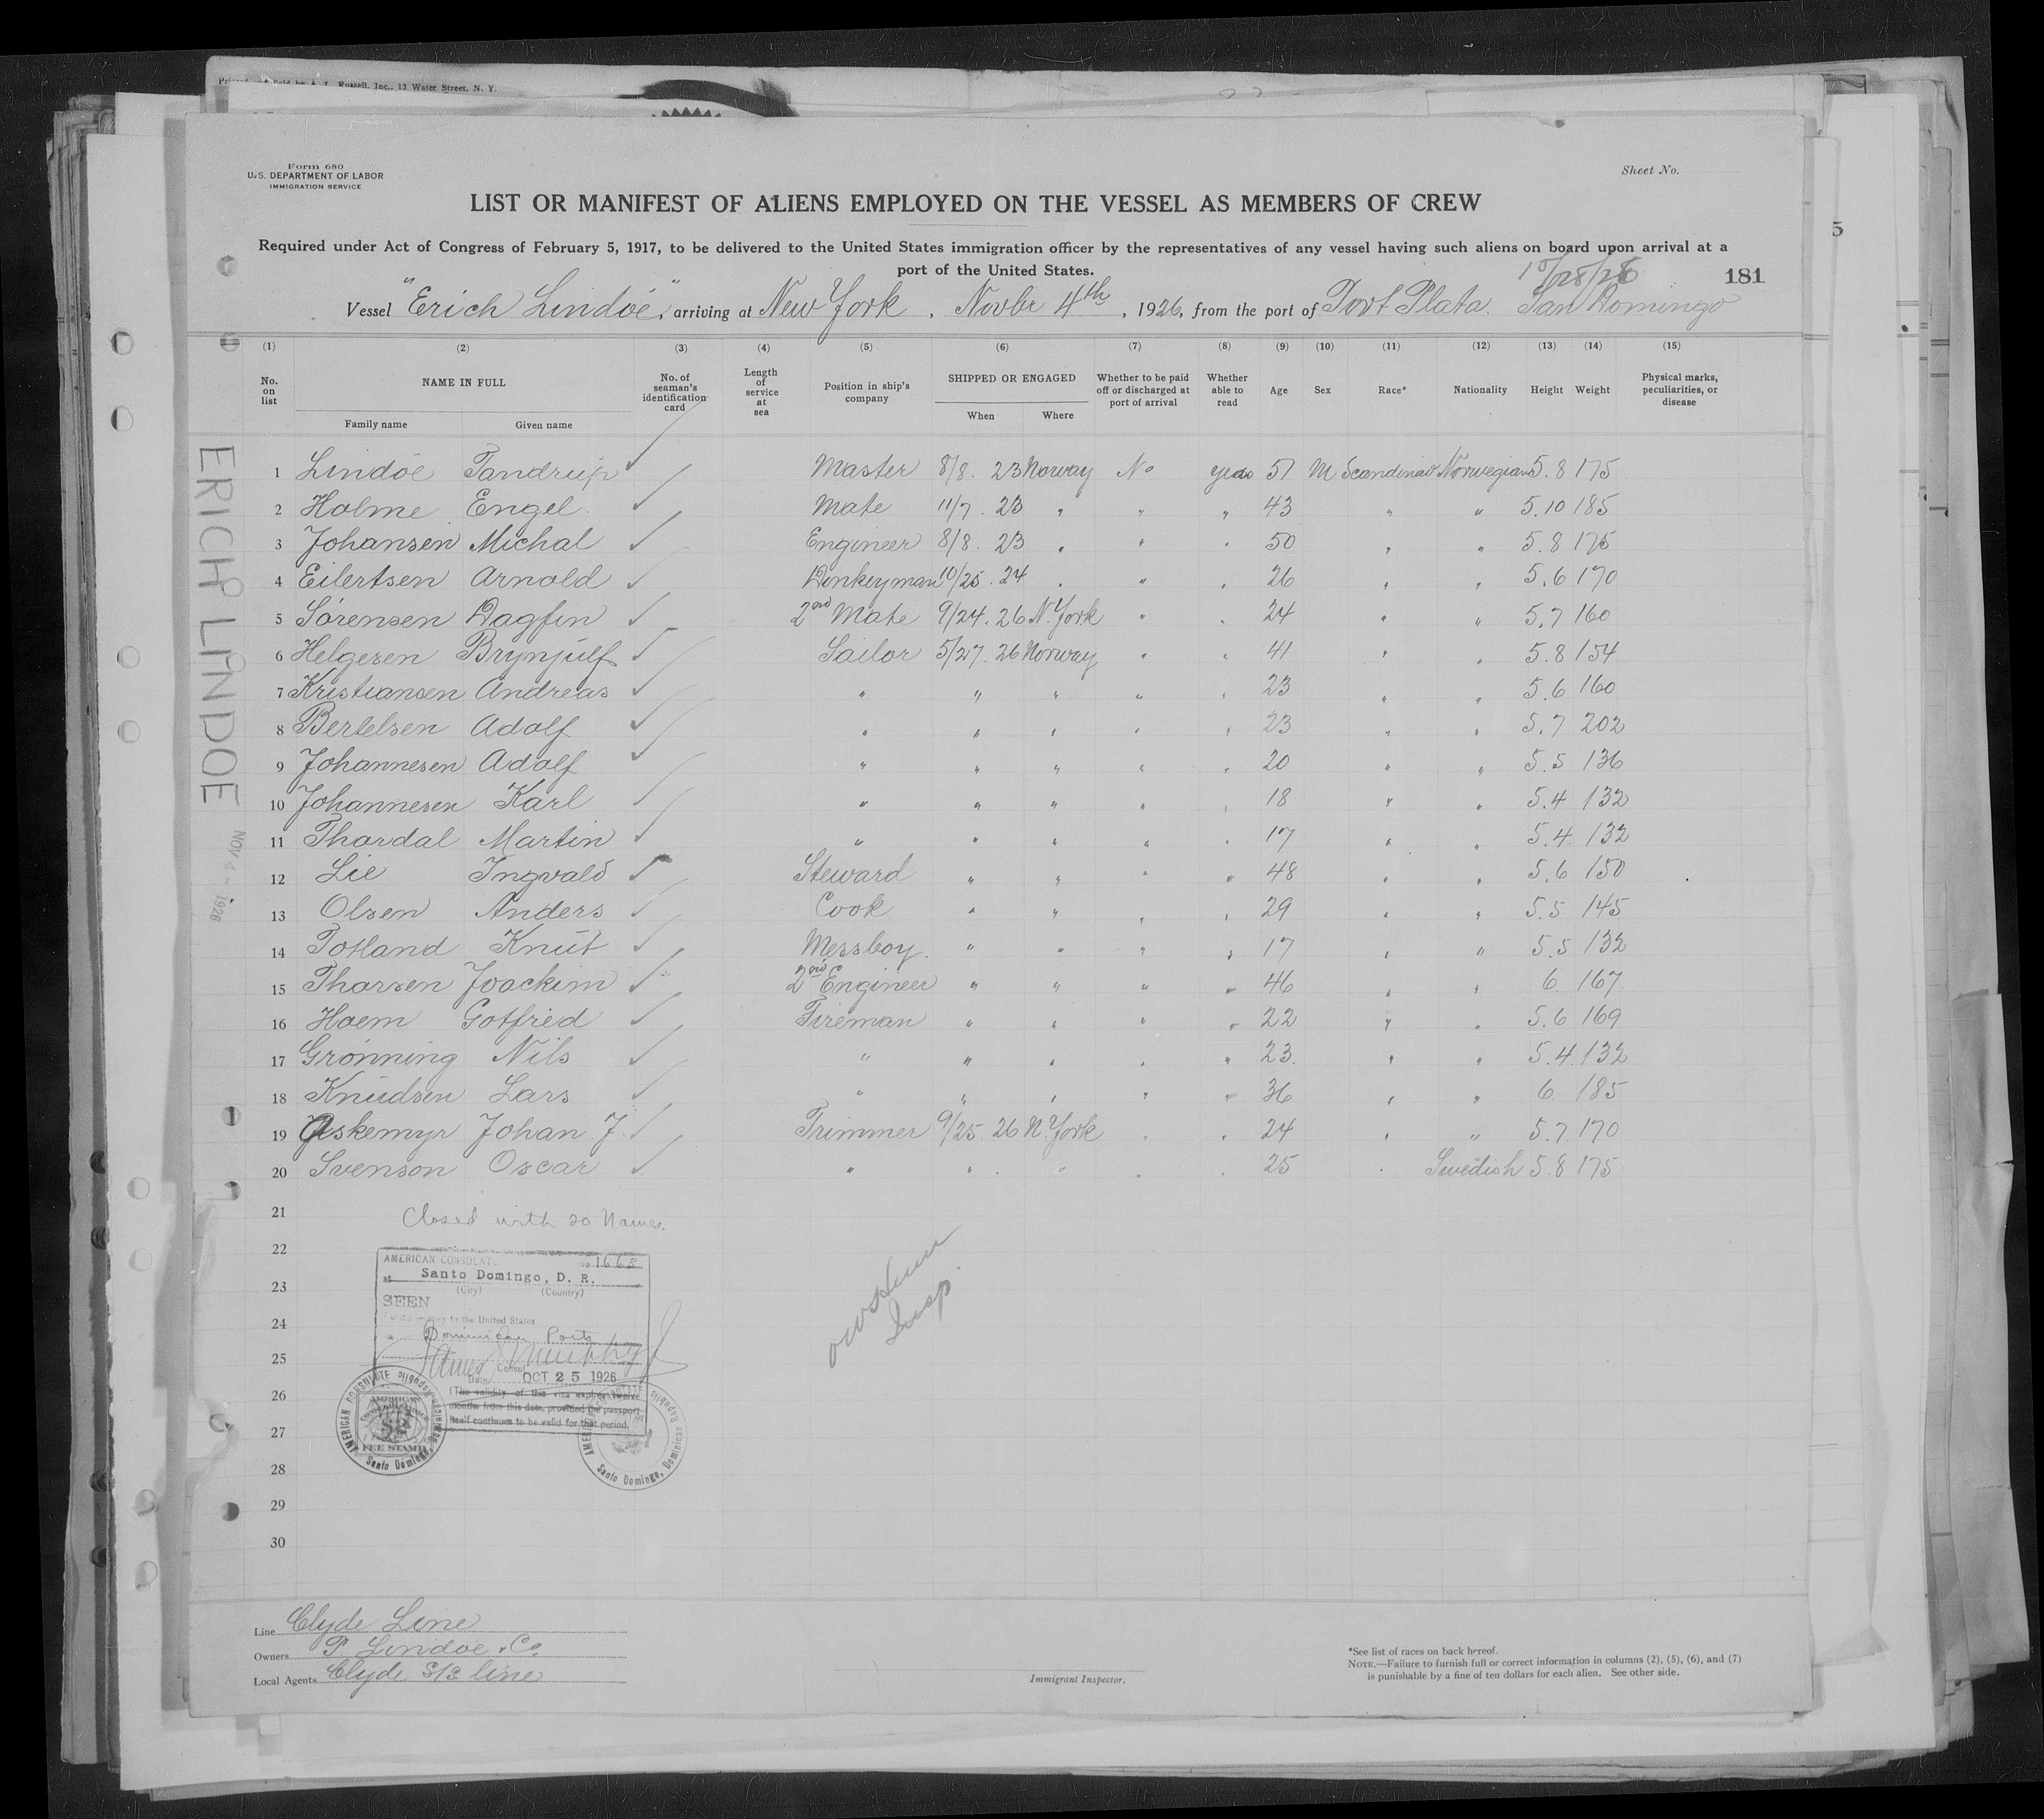 Printed and Sold by A. L. Russell, Inc., 13 Water Street, N. Y.
Form 680
U.S. DEPARTMENT OF LABOR
IMMIGRATION SERVICE
Sheet No.
LIST OR MANIFEST OF ALIENS EMPLOYED ON THE VESSEL AS MEMBERS OF CREW
Required under Act of Congress of February 5, 1917, to be delivered to the United States immigration officer by the representatives of any vessel having such aliens on board upon arrival at a
port of the United States.
10/28/26
181
5
Vessel "Erich Lindöe", arriving at New York, Novbr 4th, 1926, from the port of Port Plata. San Domingo
(1) (2) (3) (4) (5) (6) (7) (8) (9) (10) (11) (12) (13) (14) (15)
No. on list NAME IN FULL Family name Given name No. of seaman's identification card Length of service at sea Position in ship's company SHIPPED OR ENGAGED When Where Whether to be paid off or discharged at port of arrival Whether able to read Age Sex Race* Nationality Height Weight Physical marks, peculiarities, or disease
1 Lindöe Tandrup ✓ Master 8/8. 23 Norway No yes 51 M Scandinav Norwegian 5.8 175
2 Holme Engel ✓ Mate 11/7. 23 " " " 43 " " 5.10 185
3 Johansen Michal ✓ Engineer 8/8. 23 " " " 50 " " 5.8 175
4 Eilertsen Arnold ✓ Donkeyman 10/25. 24 " " " 26 " " 5.6 170
5 Sörensen Dagfin ✓ 2nd Mate 9/24. 26 N. York " " 24 " " 5.7 160
6 Helgesen Brynjulf ✓ Sailor 5/27. 26 Norway " " 41 " " 5.8 154
7 Kristiansen Andreas ✓ " " " " " 23 " " 5.6 160
8 Bertelsen Adolf ✓ " " " " " 23 " " 5.7 202
9 Johannesen Adolf ✓ " " " " " 20 " " 5.5 136
10 Johannesen Karl ✓ " " " " " 18 " " 5.4 132
11 Thordal Martin ✓ " " " " " 17 " " 5.4. 132
12 Lie Ingvald ✓ Steward " " " " 48 " " 5.6 150
13 Olsen Anders ✓ Cook " " " " 29 " " 5.5 145
14 Totland Knut ✓ Messboy. " " " " 17 " " 5.5 132
15 Thorsen Joackim ✓ 2nd Engineer " " " " 46 " " 6. 167
16 Hoem Gotfred ✓ Fireman " " " " 22 " " 5.6 169
17 Grönning Nils ✓ " " " " " 23. " " 5.4. 132
18 Knudsen Lars ✓ " " " " " 36 " " 6. 185
19 Askemyr Johan J. ✓ Trimmer 9/25. 26 N. York " " 24 " " 5.7 170
20 Svenson Oscar ✓ " " " " " 25 " Swedish 5.8 175
21
Closed with 20 Names.
22
23
24
25
26
27
28
29
30
ERICH LINDOE
NOV 4 - 1926
AMERICAN CONSULATE No 1663
at Santo Domingo, D. R.
(City) (Country)
SEEN
to the United States
Dominican Ports
Consul
Date OCT 25 1926
(The validity of this visa expires twelve
months from this date, provided the passport
itself continues to be valid for that period.
AMERICAN CONSULATE Santo Domingo, Dominican Republic
AMERICAN $2 FEE STAMP
AMERICAN CONSULATE Santo Domingo, Dominican Republic
Insp.
Line Clyde Line
Owners P. Lindöe & Co.
Local Agents Clyde S/S line
Immigrant Inspector.
*See list of races on back hereof.
NOTE.—Failure to furnish full or correct information in columns (2), (5), (6), and (7)
is punishable by a fine of ten dollars for each alien. See other side.